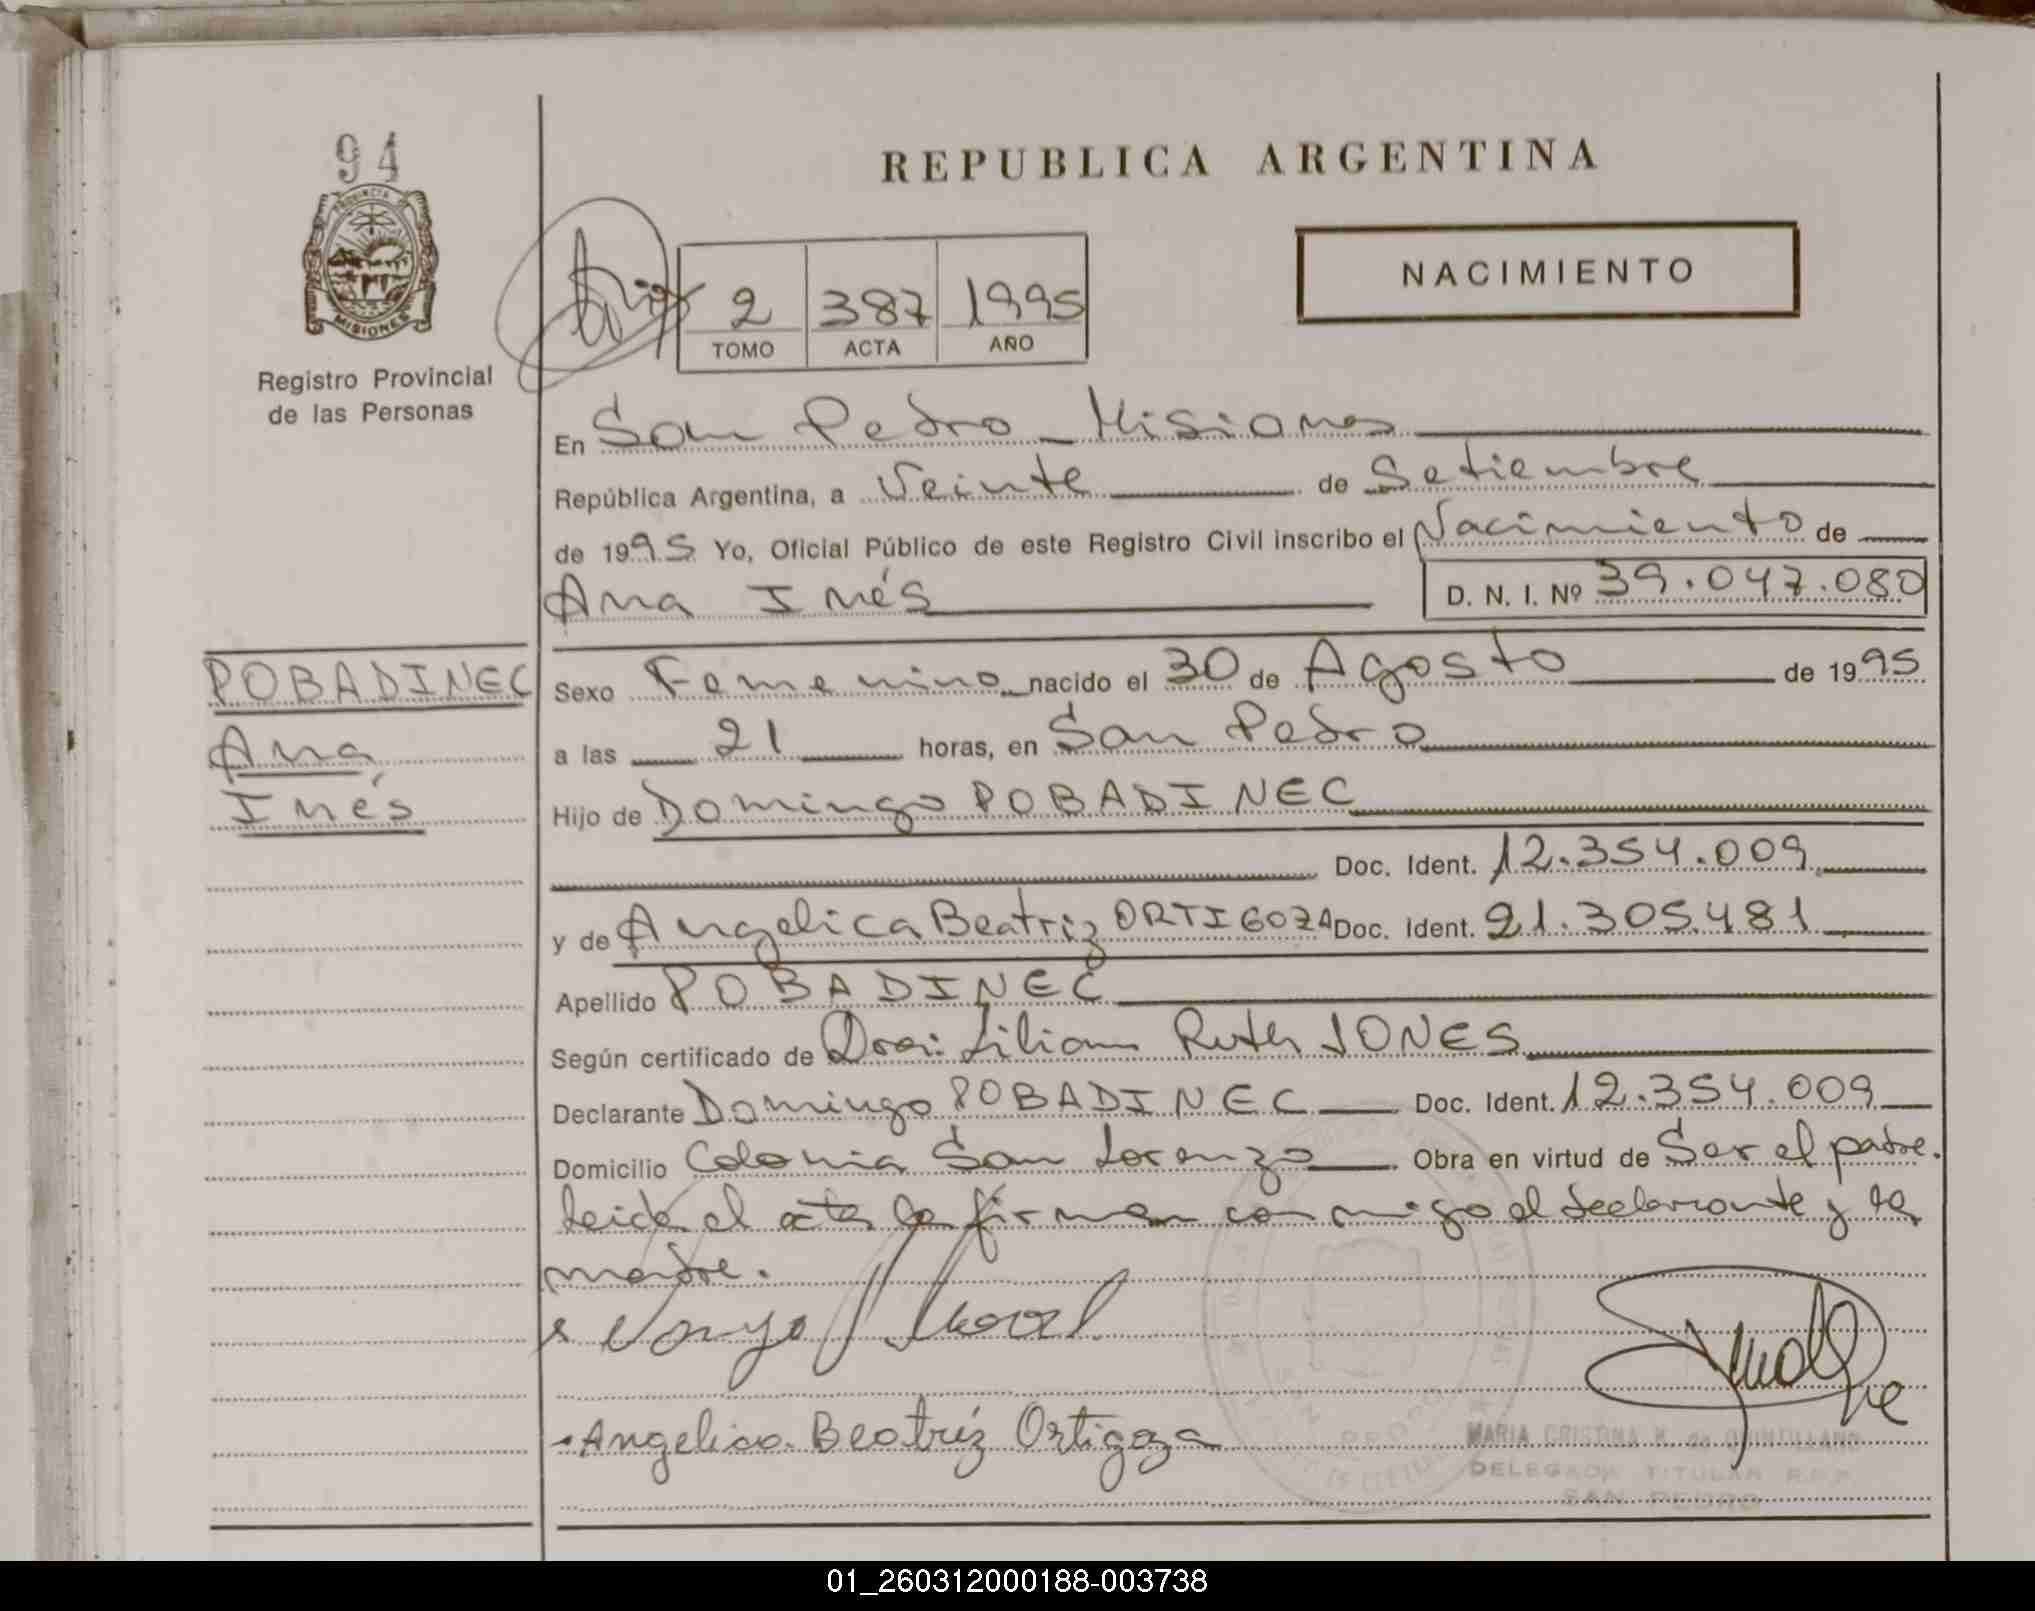 94
PROVINCIA DE
MISIONES
Registro Provincial
de las Personas
REPUBLICA ARGENTINA
NACIMIENTO
2 387 1995
TOMO ACTA AÑO
En San Pedro - Misiones
República Argentina, a Veinte de Setiembre
de 1995 Yo, Oficial Público de este Registro Civil inscribo el Nacimiento de
Ana Inés D. N. I. Nº 39.047.080
POBADINEC
Ana
Inés
Sexo Femenino nacido el 30 de Agosto de 1995
a las 21 horas, en San Pedro
Hijo de Domingo POBADINEC
Doc. Ident. 12.354.009
y de Angelica Beatriz ORTIGOZA Doc. Ident. 21.305.481
Apellido POBADINEC
Según certificado de Dra: Lilian Ruth JONES
Declarante Domingo POBADINEC Doc. Ident. 12.354.009
Domicilio Colonia San Lorenzo Obra en virtud de Ser el padre.
Leida el acta la firman con migo el declarante y la
madre.
Angelica Beatriz Ortigoza
MARIA CRISTINA de QUINTILLANO
DELEGADA TITULAR R.P.P.
SAN PEDRO
01_260312000188-003738